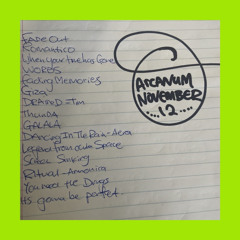 Fade Out
Romantico
When your time has Gone
WORDS
Fading Memories
Giza
Thunda
GALALA
DANcing In The Rain - Aera
from outer Space
Sinking
Ritual - Armonica
You need the Drugs
its gonna be perfect
ARCANUM
NOVEMBER
....12....